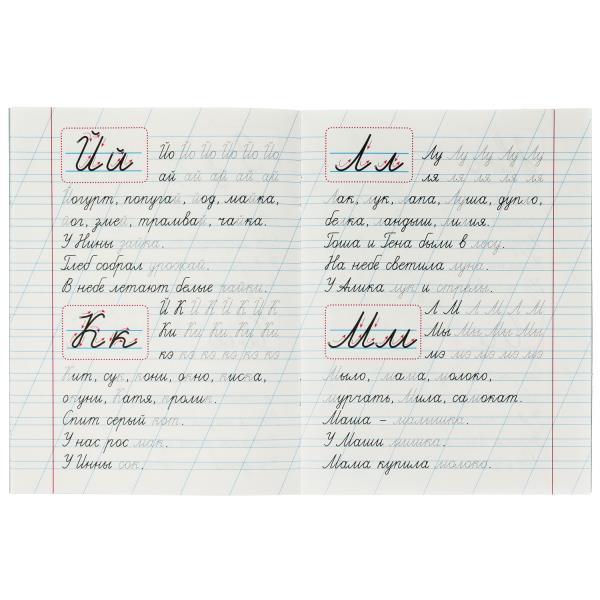 Йй
Йо Йо Йо Йо Йо Йо
ай ай ай ай ай
Йогурт, попугай, йод, майка,
йог, змей, трамвай, чайка.
У Нины зайка.
Глеб собрал урожай.
В небе летают белые чайки.
Кк
Й К Й К Й К Й К
Ки Ки Ки Ки Ки
кэ кэ кэ кэ кэ кэ
Кит, сук, кони, окно, киска,
окуни, Катя, кролик.
Спит серый кот.
У нас рос мак.
У Инны сок.
Лл
Лу Лу Лу Лу Лу
ля ля ля ля ля
Лак, лук, лапа, Луша, дупло,
белка, ландыш, лилия.
Гоша и Гена были в лесу.
На небе светила луна.
У Алика лук и стрелы.
Мм
Л М Л М Л М
Мы Мы Мы Мы
мэ мэ мэ мэ мэ
Мыло, мама, молоко,
мурчать, Мила, самокат.
Маша – малышка.
У Маши
Мама купила молоко.